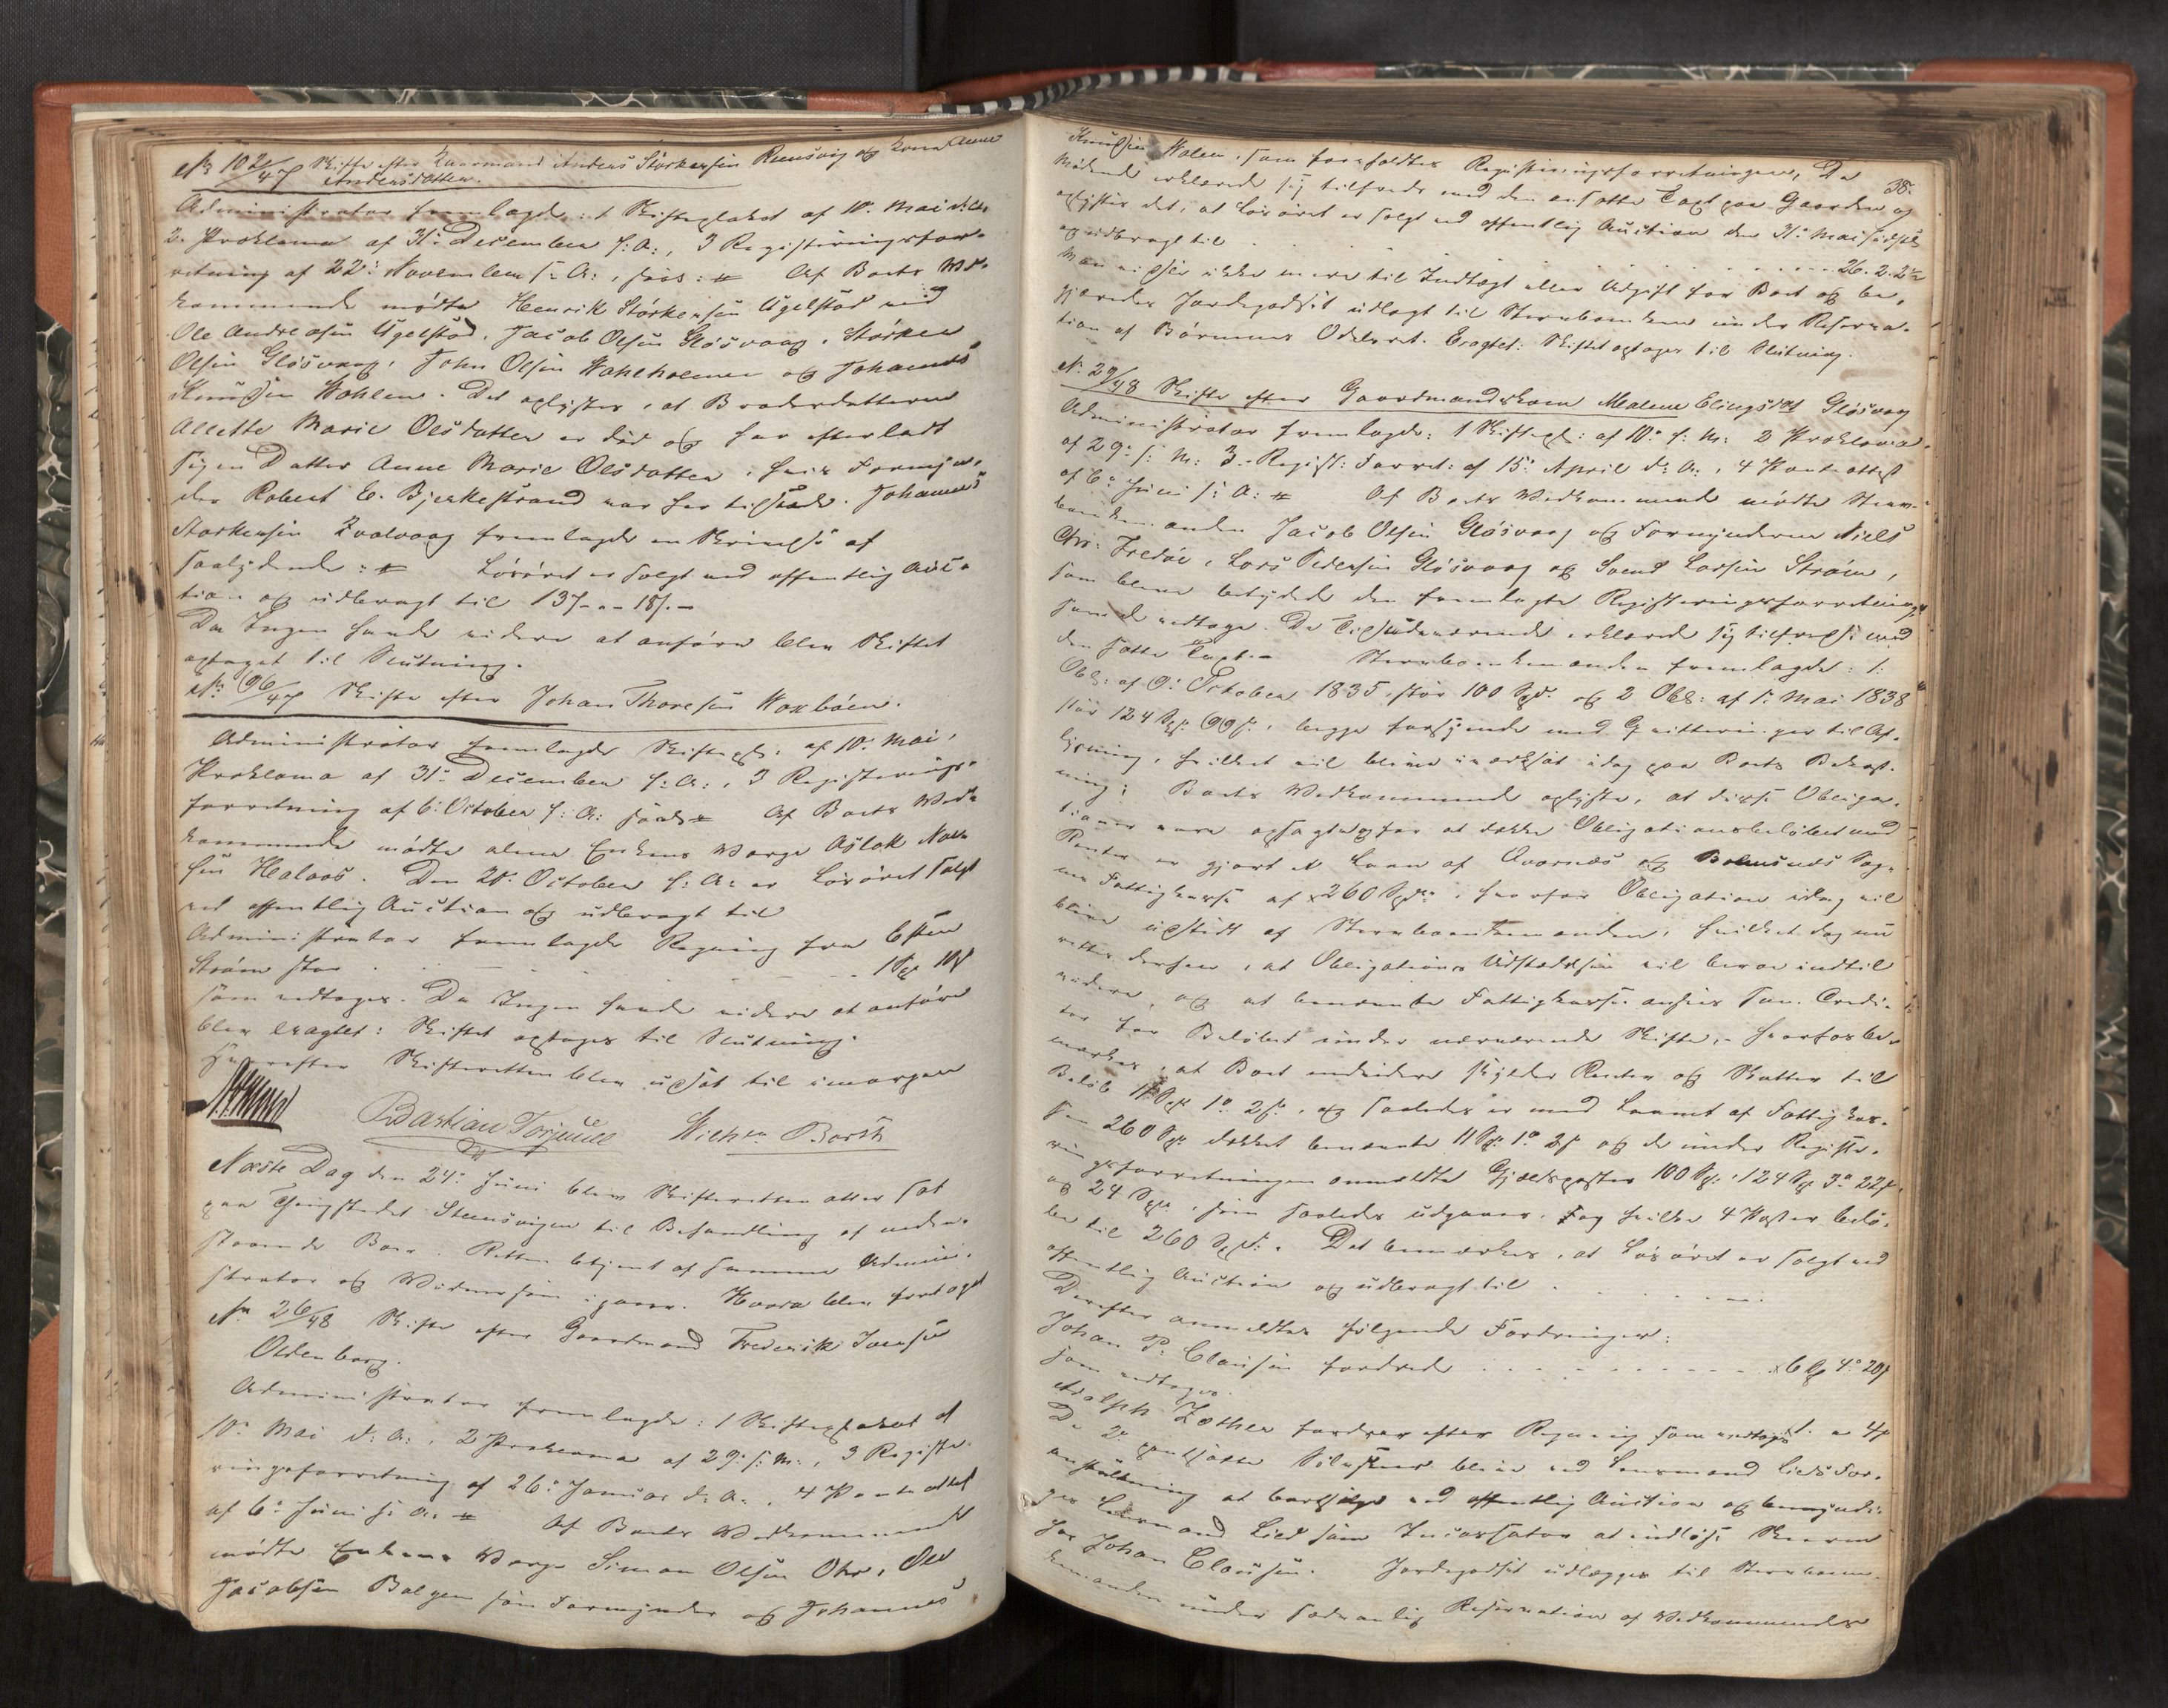 No 102/47 Skifte efter Kaarmand Anders Størkersen Reensvig og Kone Anne
Andersdatter.
Administrator fremlagde: 1 Skifteplakat af 10de Mai d: A:
2. Proklama af 31te December f: A:, 3 Registeringsfor-
retning af 22de November f: A:, saal: # Af Boets Ved-
kommende mødte Henrik Størkersen Ugelstad ved
Ole Andreasen Ugelstad, Jacob Olsen Gløsvaag, Størker
Olsen Gløsvaag, John Olsen Wahlholmen og Johannes
Knudsen Wohlen. Det oplystes, at Broderdatteren
Allette Marie Olsdatter er død og har efterladt
sig en Datter Anne Marie Olsdatter, hvis Formyn-
der Robert E. Bjerkestrand var her tilstæde. Johannes
Størkersen Qvalvaag fremlagde en Skrivelse af
saalydende: # Løsøret er solgt ved offentlig Auc-
tion og udbragt til 137 - " - 18 s. -
Da Ingen havde videre at anføre blev Skiftet
optaget til Slutning.
No 96/47 Skifte efter Johan Thoresen Woxbøen.
Administrator fremlagde Skiftepl: af 10de Mai,
Proklama af 31te December f: A:, 3 Registerings-
forretning af 6te October f: A: saal: # Af Boets Ved-
kommende mødte alene Enkens Verge Aslak
sen Healaas. Den 28de October f: A: er Løsøret solgt
ved offentlig Auction og udbragt til
Administrator fremlagde Regning fra Esten
Strøm stor . . . 1 Spd 18 s
som vedtoges. Da Ingen havde videre at anføre
blev eragtet: Skiftet optages til Slutning.
Hvorefter Skifteretten blev udsat til imorgen
Bastian Torjusen Wilh: Borch
Næste Dag den 24de Juni blev Skifteretten atter sat
paa Thingstedet Steensvigen til Behandling af neden-
staaende Boer. Retten betjent af samme Admini-
strator og Vidner som igaar. Hvorda blev foretaget
No 26/48 Skifte efter Gaardmand Frederik Iversen
Oldenborg.
Administrator fremlagde: 1 Skifteplakat af
10de Mai d: A:, 2 Proklama af 29de f: M:, 3 Registe-
ringsforretning af 26de Januar d: A:, 4 Panteattest
af 6te Juni s: A: # Af Boets Vedkommende
mødte Enkens Verge Simon Olsen Ohr, Ole
Jacobsen Bolgen som Formynder og Johannes
38.
Knudsen Wolen, som foreholdtes Registeringsforretningen. De
Mødende erklærede sig tilfreds med den ansatte Taxt paa Gaarden og
oplystes det, at Løsøret er solgt ved offentlig Auction den 31te Mai sidstl:
og udbragt til . . . 26. 2. 2 s
Man vidste ikke mere til Indtægt eller Udgift for Boet og be-
gjæredes Jordegodset udlagt til Sterboenken under Reserva-
tion af Børnenes Odelsret. Eragtet: Skiftet optages til Slutning.
No 29/48 Skifte efter Gaardmandskone Malene Ellingsdat Gløsvaag
Administrator fremlagde: 1 Skiftepl: af 10de f: M: 2 Proklama
af 29de f: M: 3. Regist: Forret: af 15de April d: A:, 4 Panteattest
af 6te Juni s: A: # Af Boets Vedkommende mødte Sterv-
boenkemanden Jacob Olsen Gløsvaag og Formynderne Niels
Chr: Fredøe, Lars Pedersen Gløsvaag og Svend Larsen Strøm,
som bleve betydede den fremlagte Registeringsforretning
som de vedtoge. De Tilstædeværende erklærede sig tilfredse med
den satte Taxt. - Stervboenkemanden fremlagde: 1:
Obl: af 9de October 1835, stor 100 Spd: og 2 Obl: af 1ste Mai 1838
stor 124 Spd 99 s:, begge forsynede med Qvitteringer til Af-
lysning, hvilket vil blive iværksat idag paa Boets Bekost-
ning; Boets Vedkommende oplyste, at disse Obliga-
tioner vare opsagte og for at dække Obligationsbeløbet med
Renter er gjort et Laan af Qvernæs og Bremsnæs Sog-
nes Fattigkasse af 260 Spd:, hvorfor Obligation idag vil
blive udstædt af Stervboenkemanden, hvilket dog nu
rettes derhen, at Obligations Udstædelsen vil beroe indtil
videre og at benævnte Fattigkasse ansees som Credi-
tor for Beløbet under nærværende Skifte, - hvorfor be-
mærkes, at Boet endvidere skylder Renter og Skatter til
Beløb 11 Spd 1 o 2 s:, og saaledes er med Laanet af Fattigkas-
sen 260 Spd dækket benævnte 11 Spd 1 o 2 s og de under Registe-
ringsforretningen anmeldte Gjældsposter 100 Spd:, 124 Spd 3 o 22 s,
og 24 Spd:, som saaledes udgaaer, og hvilke 4 Poster belø-
be til 260 Spd:. Det bemærkes, at Løsøret er solgt ved
offentlig Auction og udbragt til . . .
Derefter anmeldtes følgende Fordringer:
Johan P: Clausen fordrede . . . 6 Spd 4 o 20 s
som vedtoges.
Adolph Lother fordrer efter Regning som vedtages 1. " 4 s
De 2de pantsatte Sølvskeer blive ved Lensmand Lieds For-
anstaltning at bortsælge ved offentlig Auction og bemyndi-
ges Lensmand Lied som Incassator at indløse Skeerne
hos Johan Clausen. Jordegodset udlægges til Stervboen-
kemanden under sædvanlig Reservation af Vedkommendes